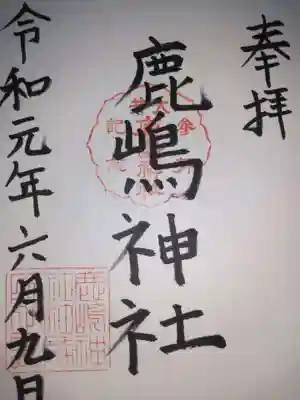 奉拝
鹿嶋神社
令和元年六月九日